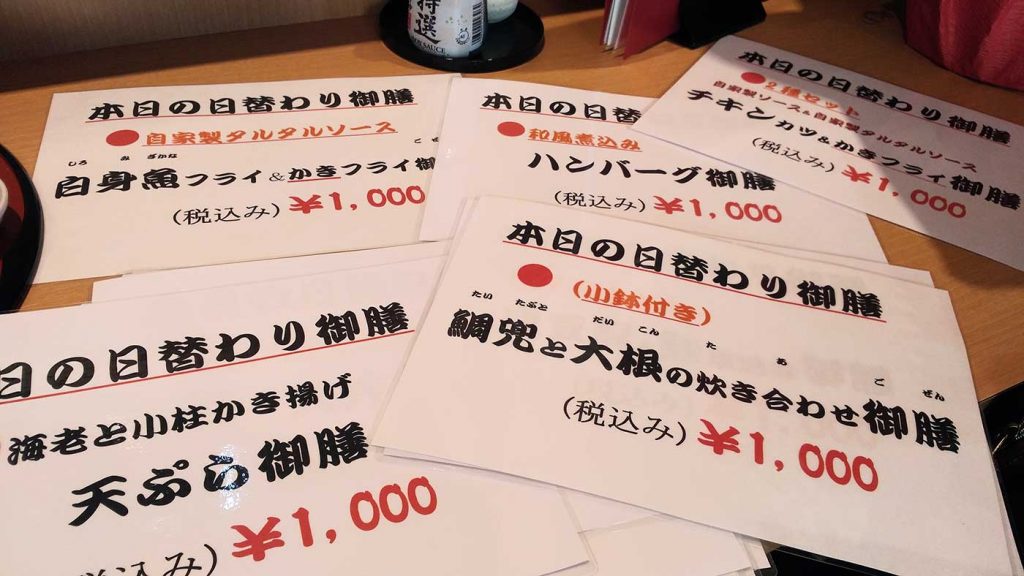 特選
SAUCE
本日の日替わり御膳
●自家製タルタルソース
しろ み ざかな
白身魚フライ&かきフライ御
(税込み) ¥1,000
本日の日替わり御
●和風煮込み
ハンバーグ御膳
(税込み) ¥1,000
本日の日替わり御膳
●2種セット
自家製ソース&自家製タルタルソース
チキンカツ&かきフライ御膳
(税込み) ¥1,000
日の日替わり御膳
海老と小柱かき揚げ
天ぷら御膳
税込み) ¥1,000
本日の日替わり御膳
●(小鉢付き)
たい たぶと だい こん た あ ご ぜん
鯛兜と大根の炊き合わせ御膳
(税込み) ¥1,000